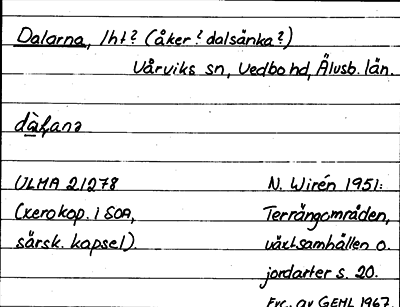 Dalarna, lht? (åker? dalsänka?)
Vårviks sn, Vedbo hd, Älvsb. län.
ULMA 21278
(xerokop. i SOA,
särsk. kapsel)
N. Wirén 1951:
Terrängområden,
växtsamhällen o.
jordarter s. 20.
Exc. av GEHL 1967